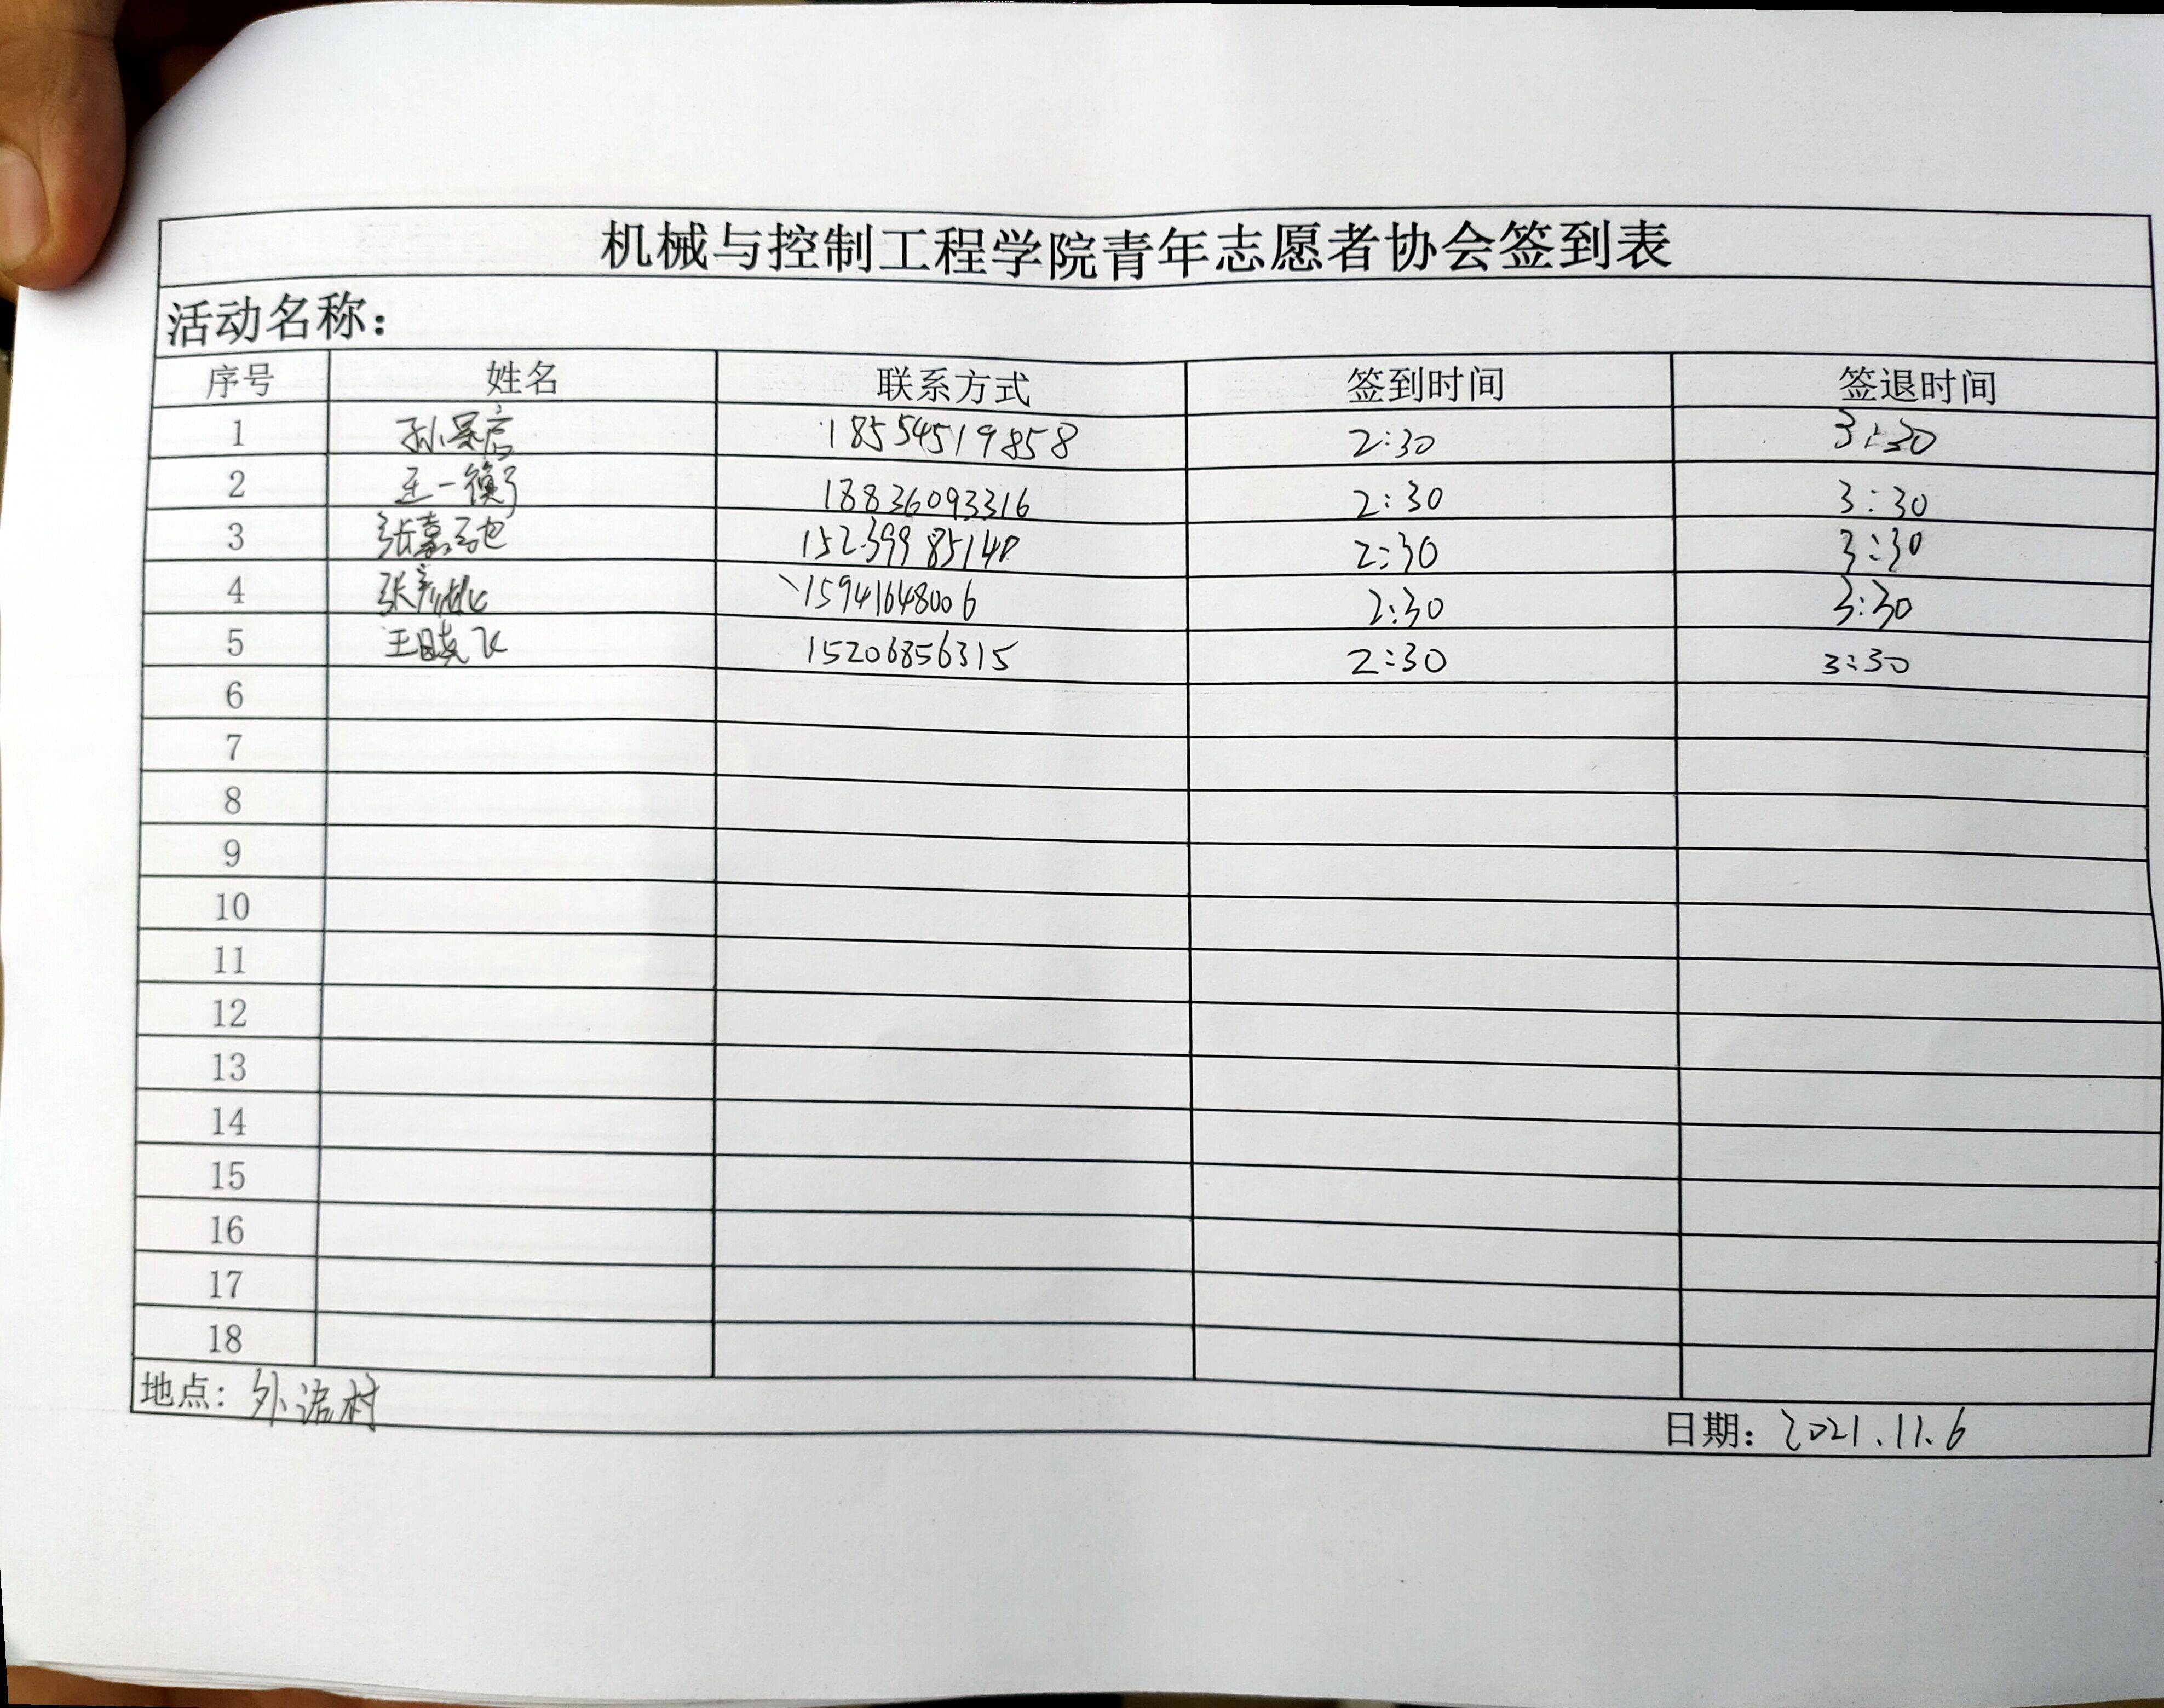 机械与控制工程学院青年志愿者协会签到表
活动名称：
序号 姓名 联系方式 签到时间 签退时间
1 孙昊宏 18554519858 2:30 3:30
2 王一衡 18836093316 2:30 3:30
3 张嘉驰 2:30 3:30
4 张彦彬 15941648006 2:30 3:30
5 王晓飞 15206856315 2:30 3:30
6
7
8
9
10
11
12
13
14
15
16
17
18
地点：外语村
日期：2021.11.6